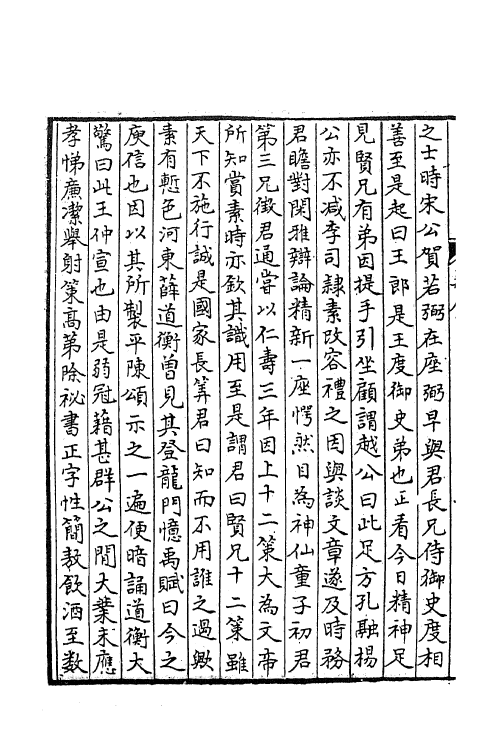 之士時宋公賀若弼在座弼早與君長兄侍御史度相
善至是起曰王郎是王度御史弟也正看今日精神足
見賢兄有弟因提手引坐顧謂越公曰此足方孔融楊
公亦不減李司隸素改容禮之因與談文章遂及時務
君瞻對閑雅辯論精新一座愕然目為神仙童子初君
第三兄徵君通嘗以仁壽三年因上十二策大為文帝
所知賞素時亦欽其識用至是謂君曰賢兄十二策雖
天下不施行誠是國家長筭君曰知而不用誰之過歟
素有慙色河東薛道衡曾見其登龍門憶禹賦曰今之
庾信也因以其所製平陳頌示之一遍便暗誦道衡大
驚曰此王仲宣也由是弱冠藉甚群公之間大業末應
孝悌廉潔舉射策高第除祕書正字性簡敖飲酒至數